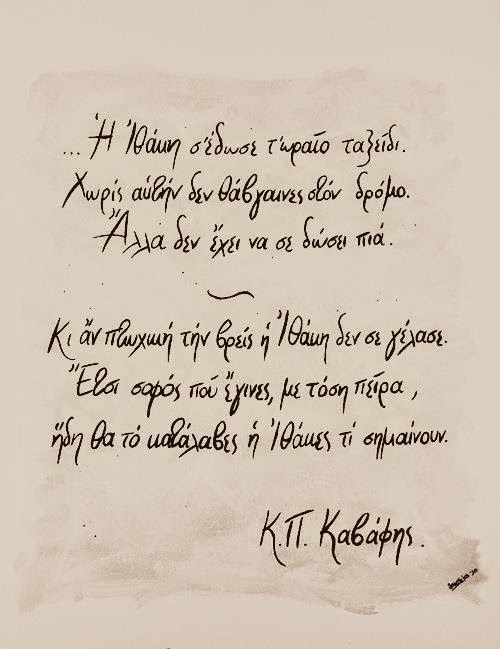 ...Ἡ Ἰθάκη σ' ἔδωσε τ' ὡραῖο ταξεῖδι.
Χωρίς αὐτήν δεν θἄβγαινες στόν δρόμο.
Ἄλλα δεν ἔχει να σε δώσει πιά.
Κι ἄν πτωχική τήν βρεῖς ἡ Ἰθάκη δεν σε γέλασε.
Ἔτσι σοφός πού ἔγινες, με τόση πεῖρα,
ἤδη θα τό κατάλαβες ἡ Ἰθάκες τί σημαίνουν.
Κ.Π. Καβάφης.